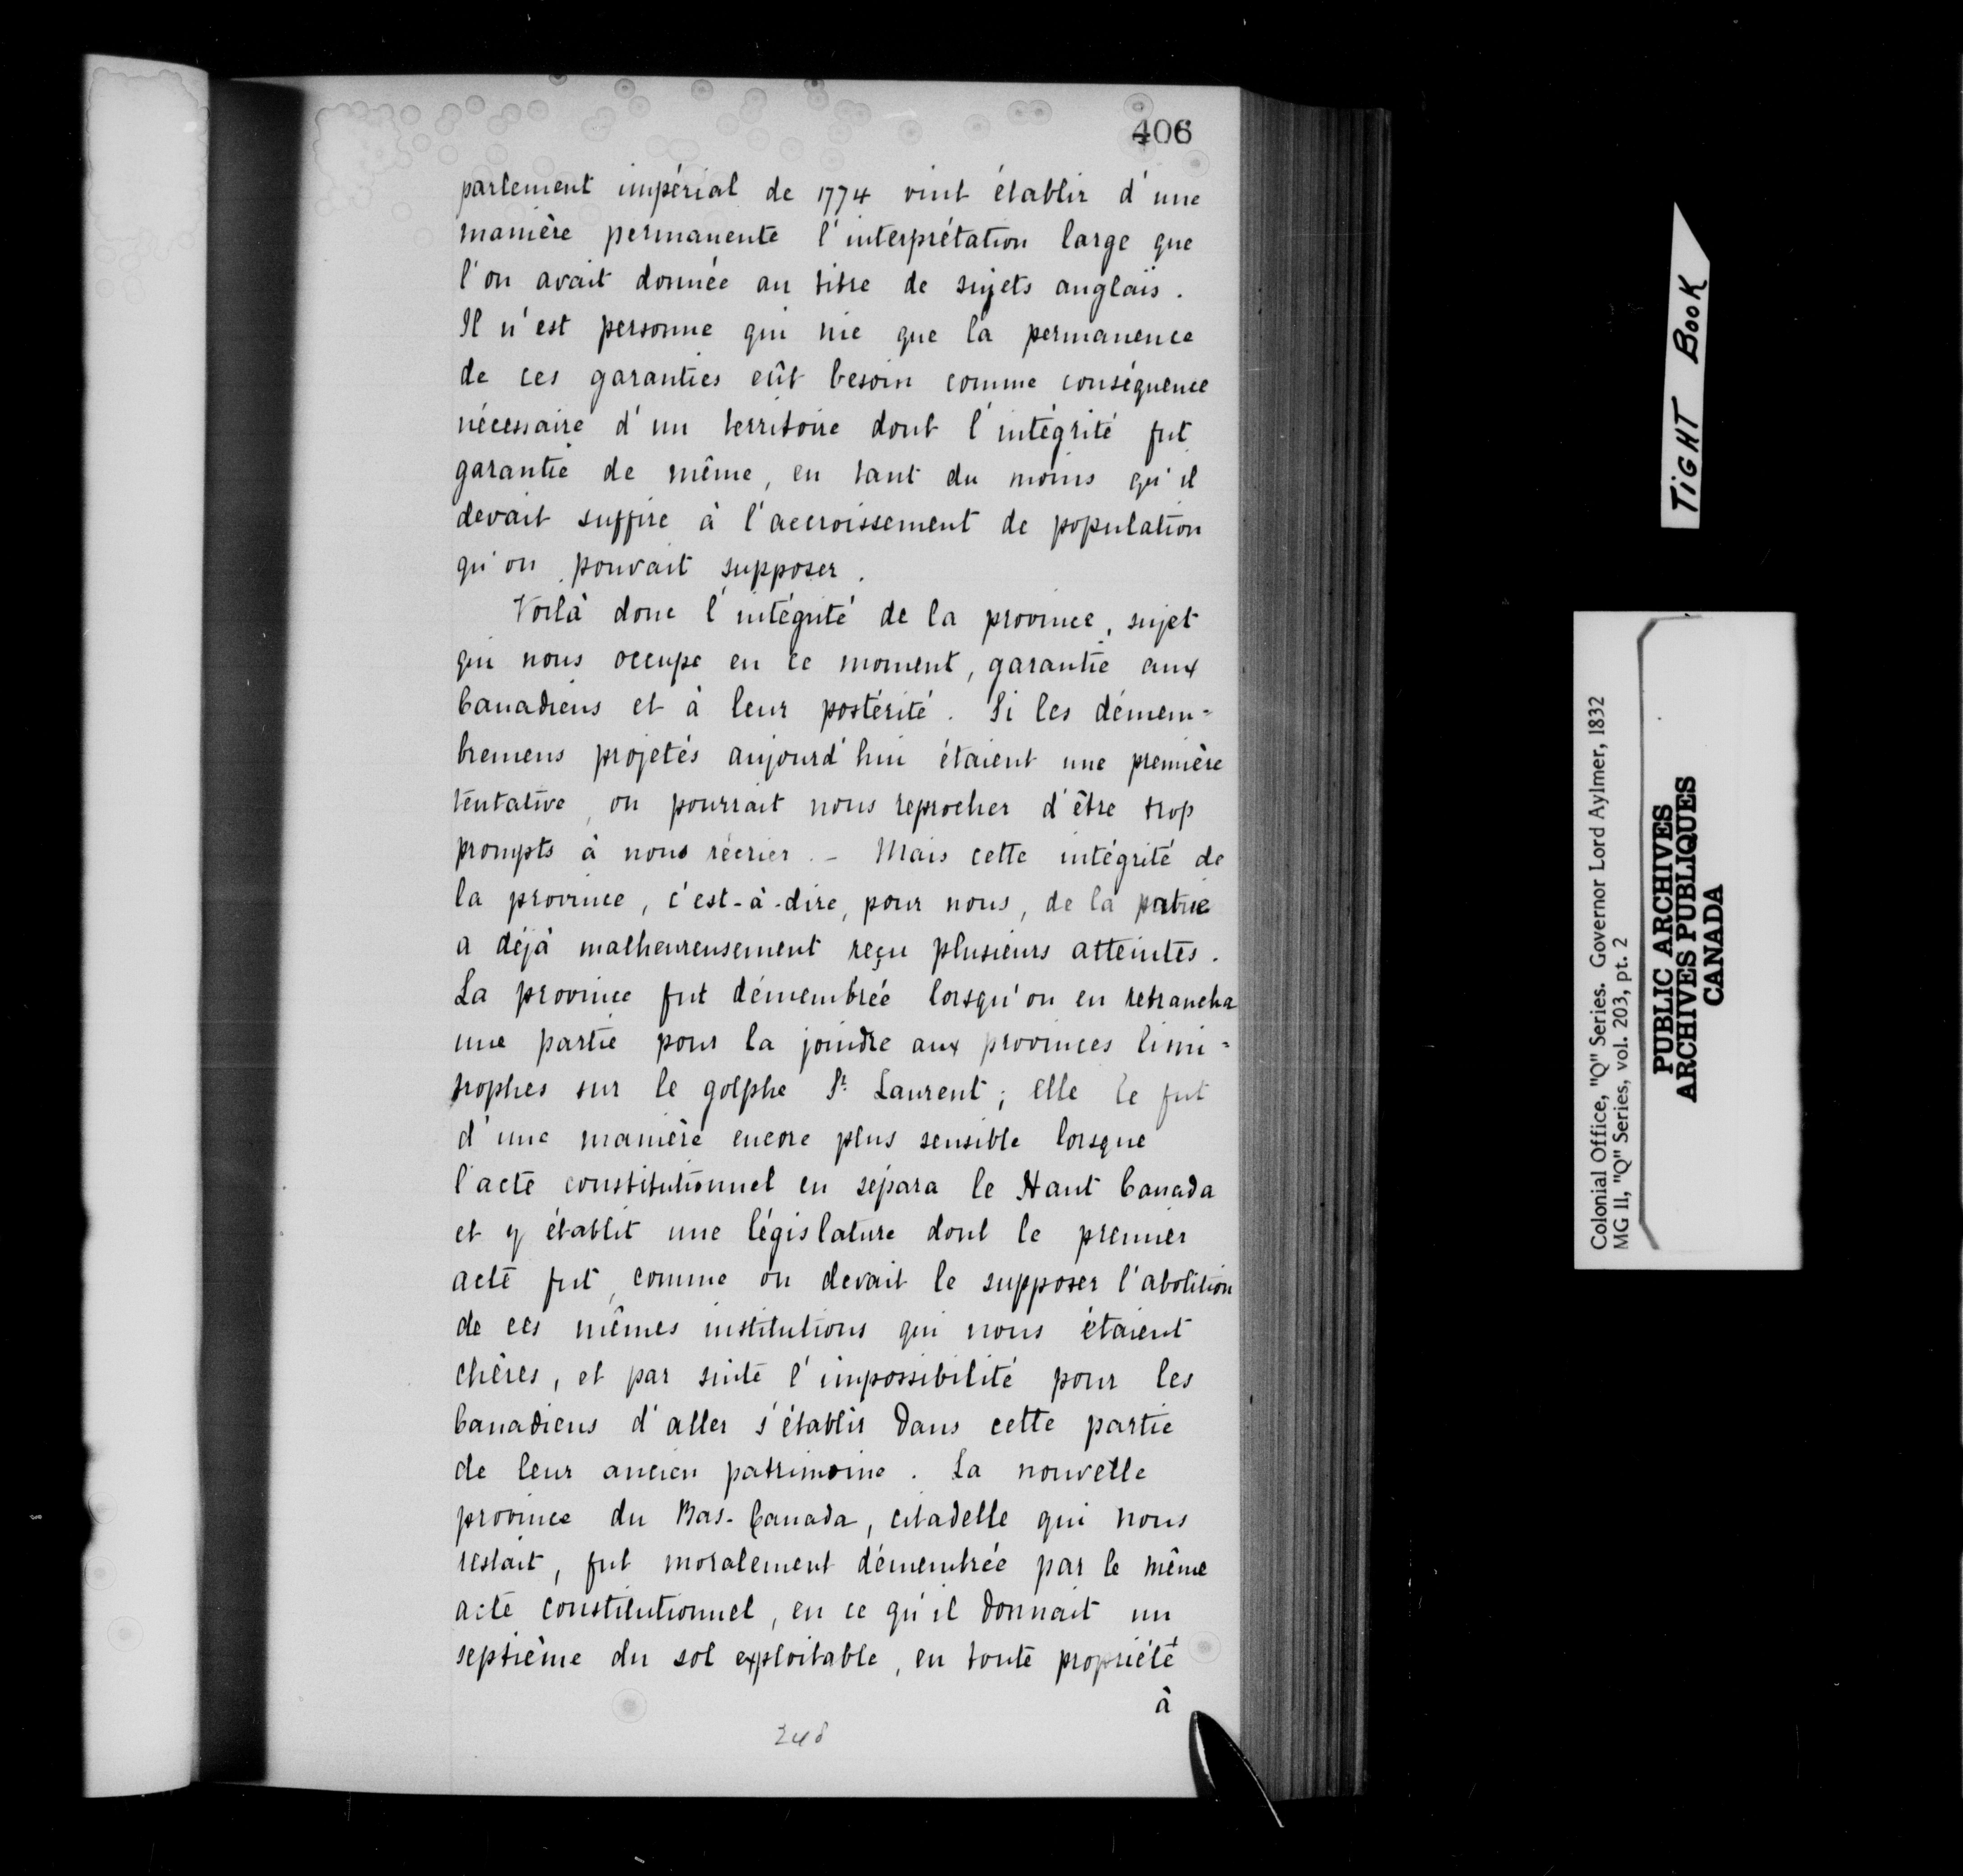 406
parlement impérial de 1774 vint établir d'une
manière permanente l'interprétation large que
l'on avait donnée au titre de sujets anglais.
Il n'est personne qui nie que la permanence
de ces garanties eût besoin comme conséquence
nécessaire d'un territoire dont l'intégrité fut
garantie de même, en tant du moins qu'il
devait suffire à l'accroissement de population
qu'on pouvait supposer.
Voilà donc l'intégrité de la province, sujet
qui nous occupe en ce moment, garantie aux
Canadiens et à leur postérité. Si les démem=
bremens projetés aujourd'hui étaient une première
tentative, on pourrait nous reprocher d'être trop
prompts à nous récrier. - Mais cette intégrité de
la province, c'est-à-dire, pour nous, de la patrie
a déjà malheureusement reçu plusieurs atteintes.
La province fut démembrée lorsqu'on en retrancha
une partie pour la joindre aux provinces limi=
trophes sur le golphe St. Laurent; elle le fut
d'une manière encore plus sensible lorsque
l'acte constitutionnel en sépara le Haut Canada
et y établit une législature dont le premier
acte fut, comme on devait le supposer l'abolition
de ces mêmes institutions qui nous étaient
chères, et par suite l'impossibilité pour les
Canadiens d'aller s'établir dans cette partie
de leur ancien patrimoine. La nouvelle
province du Bas-Canada, citadelle qui nous
restait, fut moralement démembrée par le même
acte constitutionnel, en ce qu'il donnait un
septième du sol exploitable, en toute propriété
à
248
TIGHT BOOK
Colonial Office, "Q" Series. Governor Lord Aylmer, 1832
MG 11, "Q" Series, vol. 203, pt. 2
PUBLIC ARCHIVES
ARCHIVES PUBLIQUES
CANADA